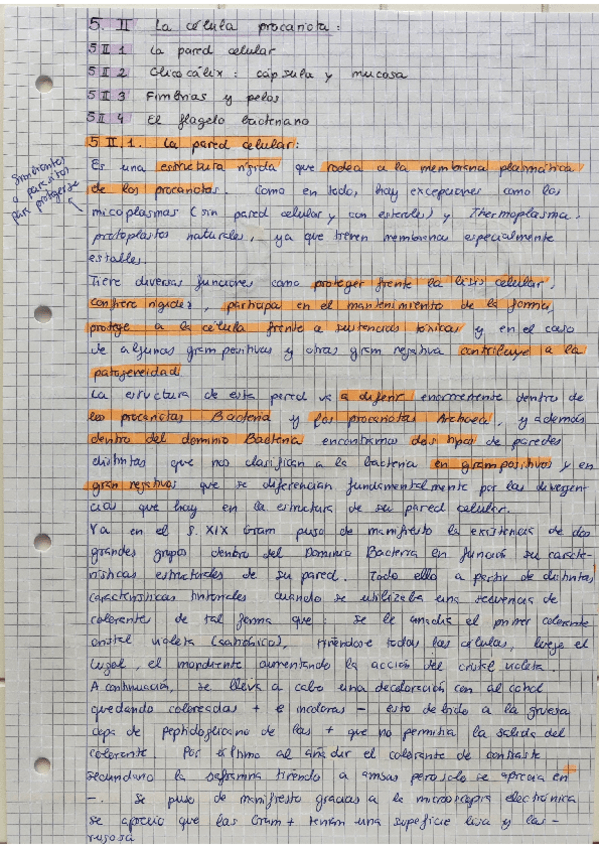 5. II La célula procariota:
5 II 1 La pared celular
5 II 2 Glicocálix: cápsula y mucosa
5 II 3 Fimbrias y pelos
5 II 4 El flagelo bacteriano
5 II. 1. La pared celular:
Es una estructura rígida que rodea a la membrana plasmática
de los procariotas. Como en todo, hay excepciones como los
micoplasmas (sin pared celular y con esteroles) y Thermoplasma.
protoplastos naturales, ya que tienen membranas especialmente
estables.
a parásitos
para protegerse
Tiene diversas funciones como proteger frente la lisis celular,
confiere rigidez, participa en el mantenimiento de la forma,
protege a la célula frente a sustancias tóxicas y en el caso
de algunas gram positivas y otras gram negativa contribuye a la
patogeneidad
La estructura de esta pared va a diferir enormemente dentro de
los procariotas Bacteria y los procariotas Archaea, y además
dentro del dominio Bacteria encontramos dos tipos de paredes
distintas que nos clasifican a la bacteria en gram positivos y en
gram negativos que se diferencian fundamentalmente por las divergen-
cias que hay en la estructura de su pared celular.
Ya en el s. XIX Gram puso de manifiesto la existencia de dos
grandes grupos dentro del Dominio Bacteria en función su caracte-
rísticas estructurales de su pared. Todo ello a partir de distintas
características tintoriales cuando se utilizaba una secuencia de
colorantes de tal forma que: se le añadía el primer colorante
cristal violeta (catiónico), tiñéndose todas las células, luego el
lugol, el mordiente aumentando la acción del cristal violeta.
A continuación, se lleva a cabo una decoloración con alcohol
quedando coloreadas + e incoloras - esto debido a la gruesa
capa de peptidoglicano de las + que no permitía la salida del
colorante. Por último al añadir el colorante de contraste
secundario la safranina tiñendo a ambas pero solo se aprecia en
-. Se puso de manifiesto gracias a la microscopía electrónica
se apreció que las Gram + tenían una superficie lisa y las -
rugosa